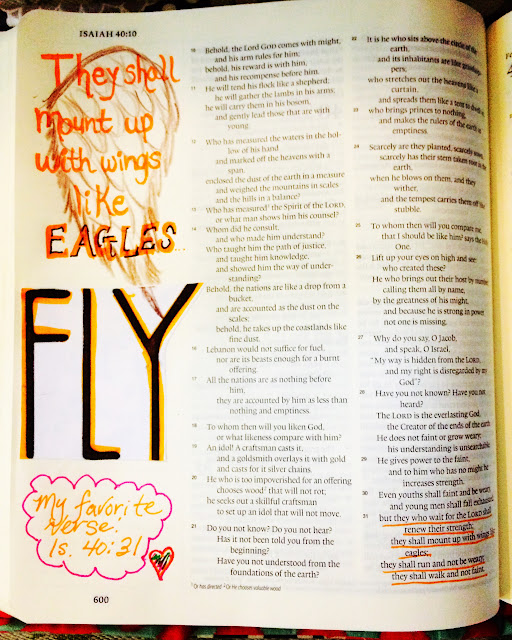 ISAIAH 40:10
They shall
mount up
with wings
like
EAGLES...
FLY
My favorite
verse:
Is. 40:31
600
10 Behold, the Lord GOD comes with might,
and his arm rules for him;
behold, his reward is with him,
and his recompense before him.
11 He will tend his flock like a shepherd;
he will gather the lambs in his arms;
he will carry them in his bosom,
and gently lead those that are with
young.
12 Who has measured the waters in the hol-
low of his hand
and marked off the heavens with a
span,
enclosed the dust of the earth in a measure
and weighed the mountains in scales
and the hills in a balance?
13 Who has measured¹ the Spirit of the LORD,
or what man shows him his counsel?
14 Whom did he consult,
and who made him understand?
Who taught him the path of justice,
and taught him knowledge,
and showed him the way of under-
standing?
Behold, the nations are like a drop from a
bucket,
and are accounted as the dust on the
scales;
behold, he takes up the coastlands like
fine dust.
16 Lebanon would not suffice for fuel,
nor are its beasts enough for a burnt
offering.
17 All the nations are as nothing before
him,
they are accounted by him as less than
nothing and emptiness.
18 To whom then will you liken God,
or what likeness compare with him?
19 An idol! A craftsman casts it,
and a goldsmith overlays it with gold
and casts for it silver chains.
20 He who is too impoverished for an offering
chooses wood² that will not rot;
he seeks out a skillful craftsman
to set up an idol that will not move.
21 Do you not know? Do you not hear?
Has it not been told you from the
beginning?
Have you not understood from the
foundations of the earth?
¹ Or has directed ² Or He chooses valuable wood
22 It is he who sits above the circle of the
earth,
and its inhabitants are like grasshop-
pers;
who stretches out the heavens like a
curtain,
and spreads them like a tent to dwell in;
23 who brings princes to nothing,
and makes the rulers of the earth as
emptiness.
24 Scarcely are they planted, scarcely sown,
scarcely has their stem taken root in the
earth,
when he blows on them, and they
wither,
and the tempest carries them off like
stubble.
25 To whom then will you compare me,
that I should be like him? says the Holy
One.
26 Lift up your eyes on high and see:
who created these?
He who brings out their host by number,
calling them all by name,
by the greatness of his might,
and because he is strong in power
not one is missing.
27 Why do you say, O Jacob,
and speak, O Israel,
"My way is hidden from the LORD,
and my right is disregarded by my
God"?
28 Have you not known? Have you not
heard?
The LORD is the everlasting God,
the Creator of the ends of the earth.
He does not faint or grow weary;
his understanding is unsearchable.
29 He gives power to the faint,
and to him who has no might he
increases strength.
30 Even youths shall faint and be weary,
and young men shall fall exhausted;
31 but they who wait for the LORD shall
renew their strength;
they shall mount up with wings like
eagles;
they shall run and not be weary;
they shall walk and not faint.